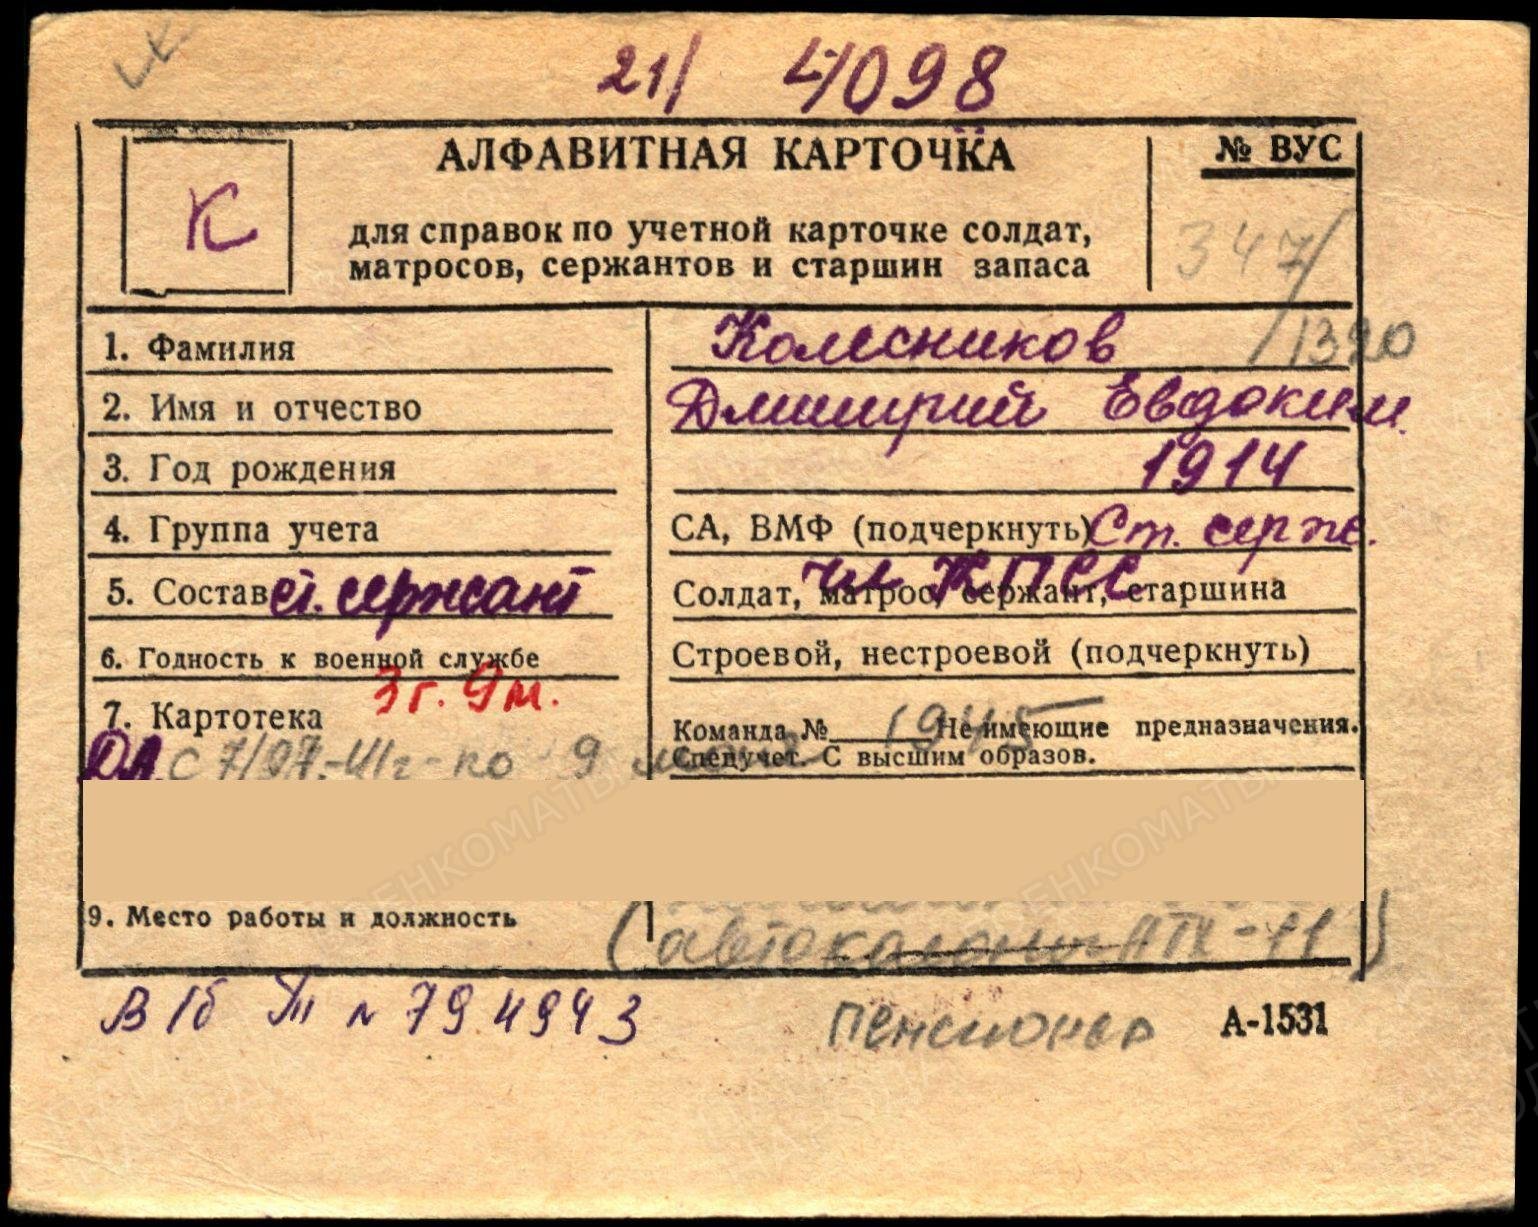 21/ 4098
АЛФАВИТНАЯ КАРТОЧКА
№ ВУС
К
для справок по учетной карточке солдат,
матросов, сержантов и старшин запаса
347/
/1320
1. Фамилия Колесников
2. Имя и отчество Дмитрий Евдоким.
3. Год рождения 1914
4. Группа учета СА, ВМФ (подчеркнуть) Ст. серж.
чл КПСС
5. Состав ст. сержант Солдат, матрос, сержант, старшина
6. Годность к военной службе Строевой, нестроевой (подчеркнуть)
3 г. 9 м.
7. Картотека Команда № Не имеющие предназначения.
1945
Спецучет. С высшим образов.
с 7/ по 9
9. Место работы и должность
(автоколонна АТХ-11)
В/б № 794943
пенсионер
А-1531